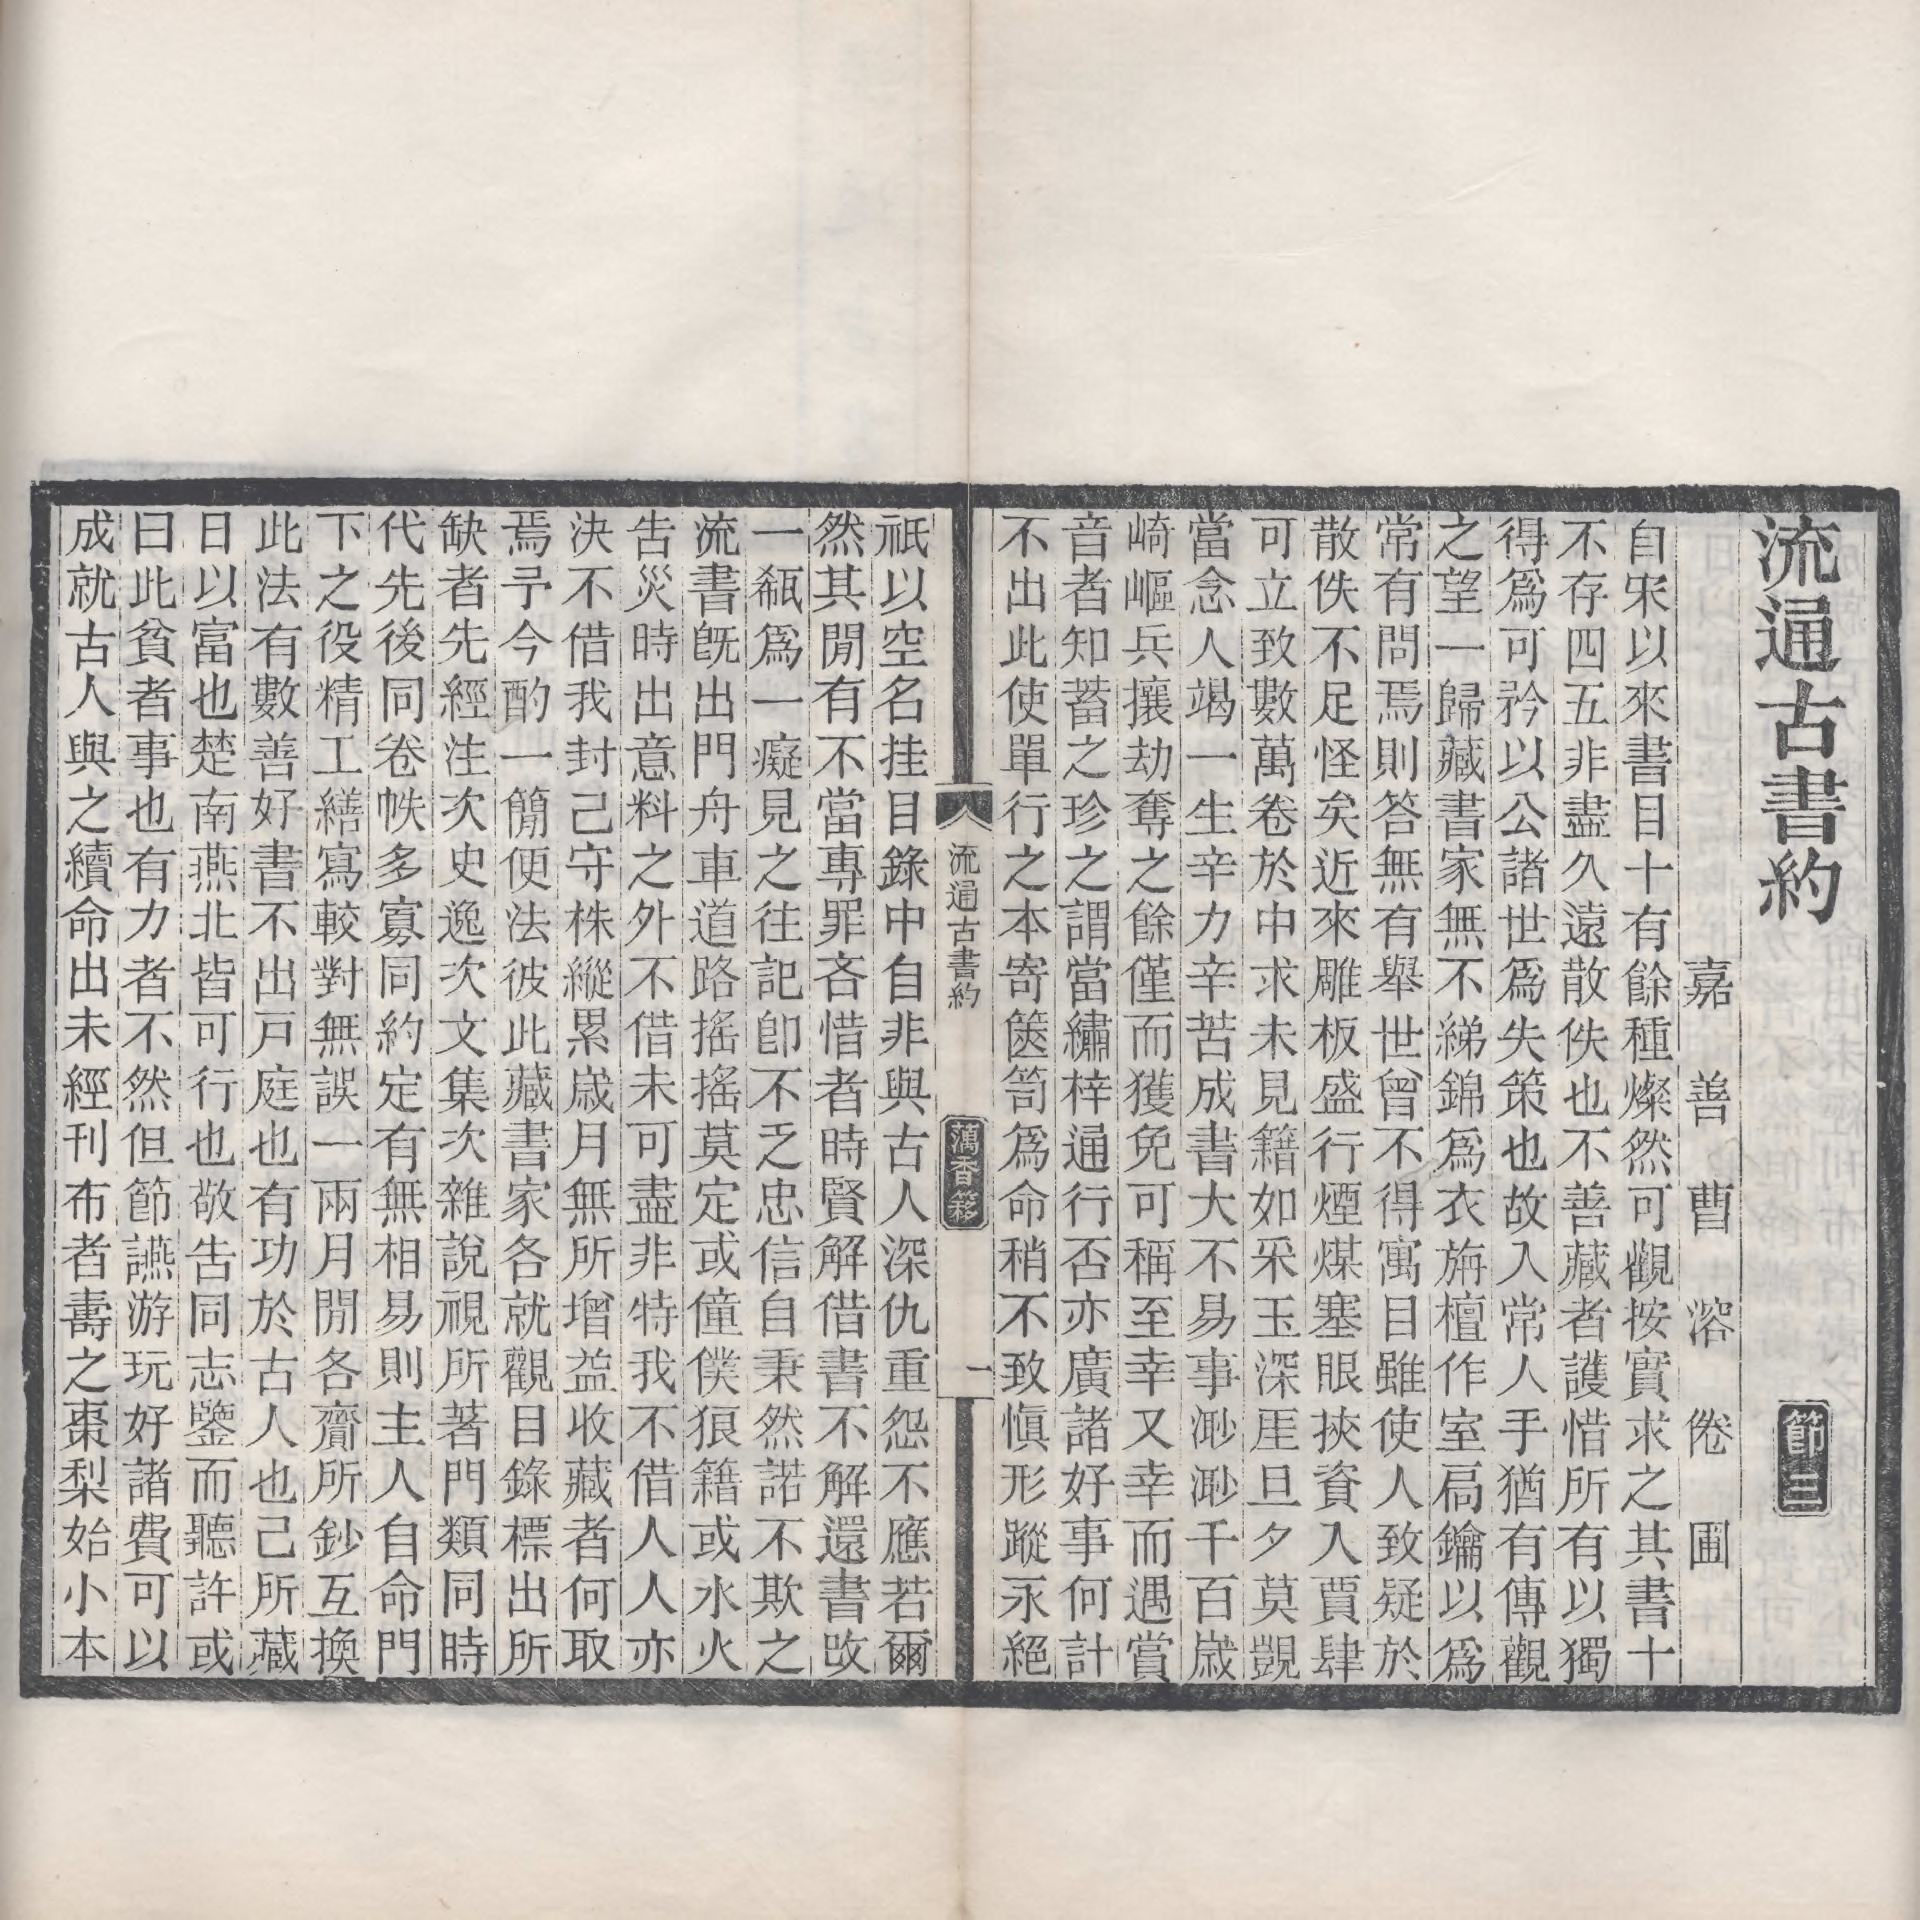 流通古書約
節三
嘉善曹溶倦圃
自宋以來書目十有餘種燦然可觀按實求之其書十
不存四五非盡久遠散佚也不善藏者護惜所有以獨
得爲可矜以公諸世爲失策也故入常人手猶有傳觀
之望一歸藏書家無不綈錦爲衣旃檀作室扃鑰以爲
常有問焉則答無有舉世曾不得寓目雖使人致疑於
散佚不足怪矣近來雕板盛行煙煤塞眼挾資入賈肆
可立致數萬卷於中求未見籍如采玉深厓旦夕莫覬
當念古人竭一生辛力辛苦成書大不易事渺渺千百歲
崎嶇兵攘劫奪之餘僅而獲免可稱至幸又幸而遇賞
音者知蓄之珍之謂當繡梓通行否亦廣諸好事何計
不出此使單行之本寄篋笥爲命稍不致愼形蹤永絕
流通古書約
一
藕香簃
祇以空名挂目錄中自非與古人深仇重怨不應若爾
然其閒有不當專罪吝惜者時賢解借書不解還書改
一瓻爲一癡見之往記卽不乏忠信自秉然諾不欺之
流書旣出門舟車道路搖搖莫定或僮僕狼籍或水火
告災時出意料之外不借未可盡非特我不借人人亦
決不借我封己守株縱累歲月無所增益收藏者何取
焉予今酌一簡便法彼此藏書家各就觀目錄標出所
缺者先經注次史逸次文集次雜說視所著門類同時
代先後同卷帙多寡同約定有無相易則主人自命門
下之役精工繕寫較對無誤一兩月閒各齎所鈔互換
此法有數善好書不出戸庭也有功於古人也己所藏
日以富也楚南燕北皆可行也敬告同志鑒而聽許或
曰此貧者事也有力者不然但節讌游玩好諸費可以
成就古人與之續命出未經刊布者壽之棗梨始小本